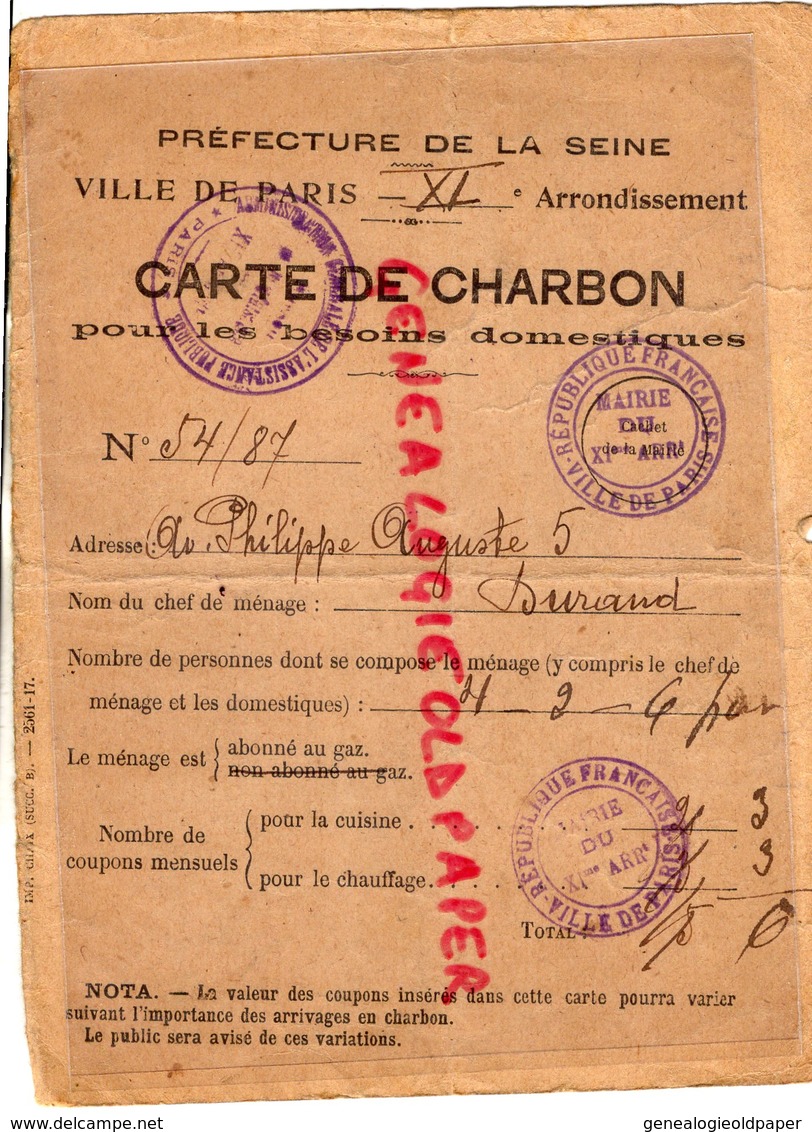 PRÉFECTURE DE LA SEINE
VILLE DE PARIS — XI e Arrondissement
CARTE DE CHARBON
pour les besoins domestiques
ADMINISTRATION GÉNÉRALE DE L'ASSISTANCE PUBLIQUE
★ PARIS ★
RÉPUBLIQUE FRANÇAISE
MAIRIE
DU
XIme ARRt
VILLE DE PARIS
Cachet
de la Mairie
N° 54/87
Adresse : Av. Philippe Auguste 5
Nom du chef de ménage : Durand
Nombre de personnes dont se compose le ménage (y compris le chef de
ménage et les domestiques) : 4 - 2 - 6
Le ménage est { abonné au gaz.
non abonné au gaz.
Nombre de
coupons mensuels
pour la cuisine . . . . 3
pour le chauffage. . . . 3
TOTAL : 6
RÉPUBLIQUE FRANÇAISE
MAIRIE
DU
XIme ARRt
VILLE DE PARIS
NOTA. — La valeur des coupons insérés dans cette carte pourra varier
suivant l'importance des arrivages en charbon.
Le public sera avisé de ces variations.
IMP. CHAIX (SUCC. B). — 2561-17.
GENEALOGIEOLDPAPER
www.delcampe.net
genealogieoldpaper